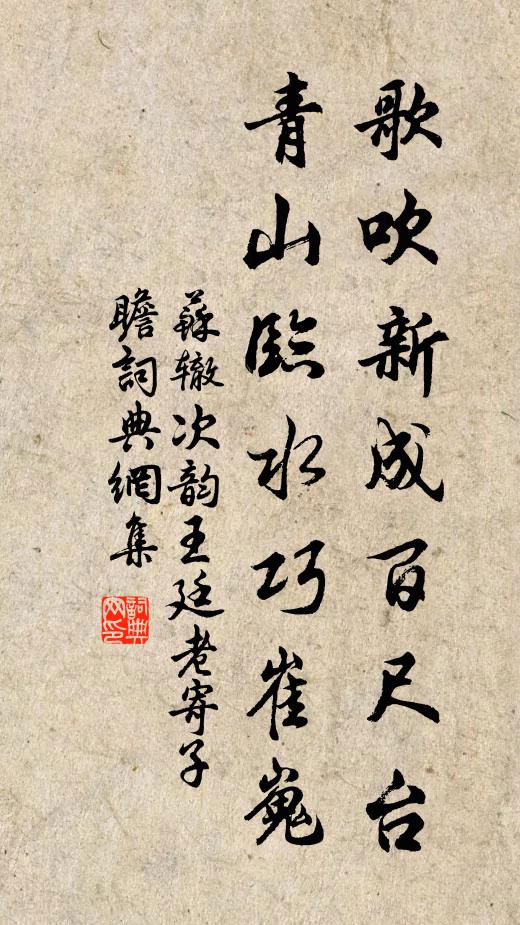 歌吹新成百尺台
青山臨水巧崔嵬
蘇辙次韵王廷老寄子
瞻詞典網集
詞典
网印